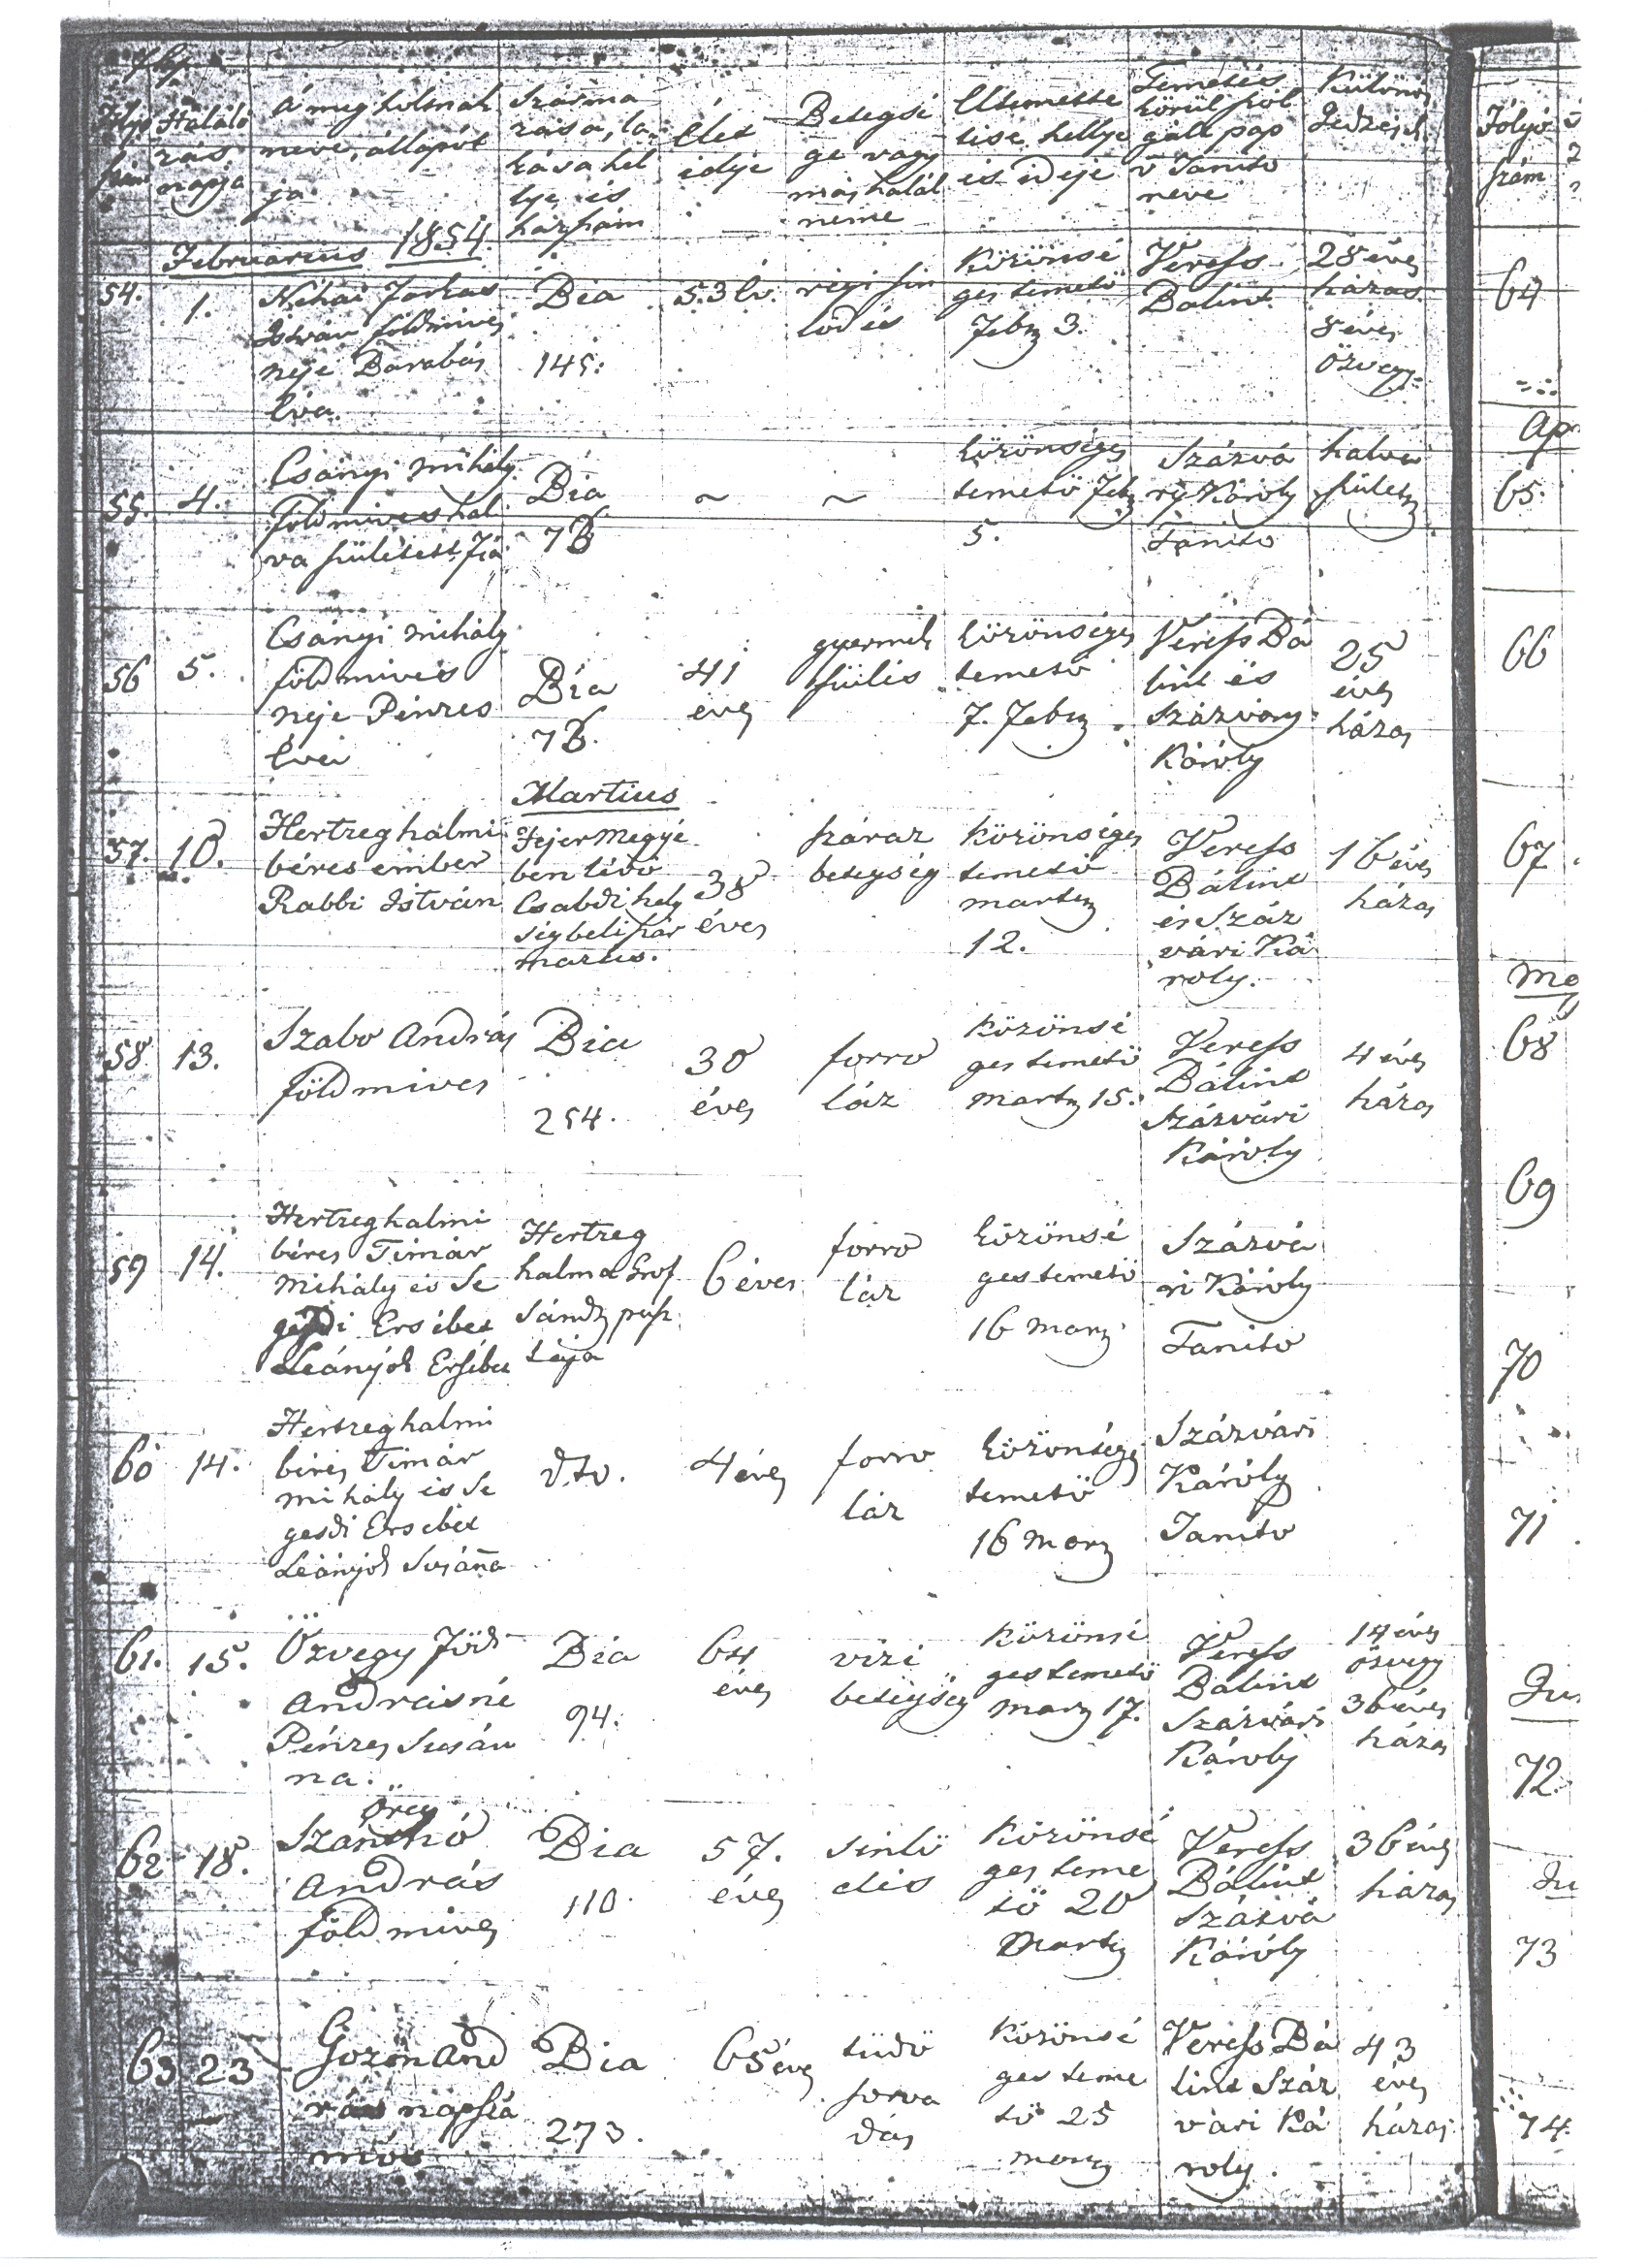 Halálo
zás
napja
A meg holtnak
neve, állapot
ja
Szárma
zása, la
kása hel
lye és
házszám
élet
ideje
Betegsé
ge vagy
más halál
neme
Eltemette
tése hellye
és ideje
Temetés
körül szol
gált pap
v Tanito
neve
Különös
Jedzések
Folyó
szám
Februarius 1854
54.
1.
Néhai Farkas
István földmives
neje Barabás
Éva.
Bia
145.
53 év.
régi sin
lődés
Közönsé
ges temető
Febr 3.
Veress
Bálint
28 éves
házas
8 éves
özvegy
64
55.
4.
Csányi Mihály
Földmives hal
va születtett fia
Bia
~
~
közönséges
temető Febr
5.
Százvá
ry Károly
Tanito
halva
születe
65.
56
5.
Csányi Mihály
földmives
neje Pénzes
Éva
Bia
41
éves
gyermek
szülés
közönséges
temető
7. Febr
Veress Bá
lint és
Százváry
Károly
25
éves
házas
66
Martius
57.
10.
Hertzeghalmi
béres ember
Rabbi István
Fejer Megyé
ben lévő
Csabdi hely
ségbeli szár
mazás.
38
éves
száraz
betegség
közönséges
temető
martz
12.
Veress
Bálint
és Száz
vári Ká
roly.
16 éves
házas
67
58
13.
Szabo András
földmives
Bia
254.
30
éves
forro
láz
közönsé
ges temető
martz 15.
Veress
Bálint
Százvári
Károly
4 éves
házas
68
59
14.
Hertzeghalmi
béres Timár
Mihály és Se
gesdi Ersébet
Leányok Ersébet
Hertzeg
halma Grof
Sándr pusz
tája
6 éves
forro
láz
közönsé
ges temető
16 marz
Százvá
ri Károly
Tanito
69
60
14.
Hertzeghalmi
béres Timár
Mihály és Se
gesdi Ersébet
Leányok Susána
dto.
4 éves
forro
láz
közönséges
temető
16 marz
Százvári
Károly
Tanito
70
71
61.
15.
Özvegy Föd
Andrásné
Pénzes Susán
na.
Bia
94.
64
éves
vizi
betegség
közönsé
ges temető
marz 17.
Veress
Bálint
Százvári
Károly
14 éves
özvegy
36 éves
házas
72
62
18.
öreg
Szanthó
András
földmives
Bia
110.
57.
éves
sinlő
dés
közönsé
ges teme
tő 20
martz
Veress
Bálint
Százvá
Károly
36 éves
házas
73
63
23
Gozon And
rás napszá
mos
Bia
273.
65 éves
tüdő
sorva
dás
közönsé
ges teme
tő 25
marz
Veress Bá
lint Száz
vári Ká
roly.
43
éves
házas
74.